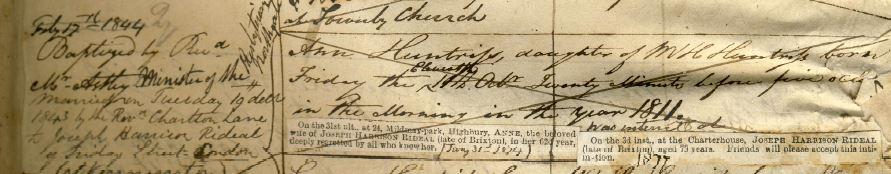 Feby 17th 1844
Baptized by Revd
Mr. Astley Minister of the
Married on Tuesday 19 decr
1843 by the Revd Charlton Lane
to Joseph Harrison Rideal
of Friday Street London
at Sowerby Church
Ann Huntriss, daughter of W H Huntriss born
Friday the Eleventh Octr Twenty Minutes before five ocl
in the Morning in the year 1811.
was interred at
On the 31st ult., at 24, Mildmay-park, Highbury, ANNE, the beloved
wife of JOSEPH HARRISON RIDEAL (late of Brixton), in her 62d year,
deeply regretted by all who knew her. (Jany 31st 1874)
On the 3d inst., at the Charterhouse, JOSEPH HARRISON RIDEAL
(late of Brixton), aged 79 years. Friends will please accept this inti-
mation.
1877